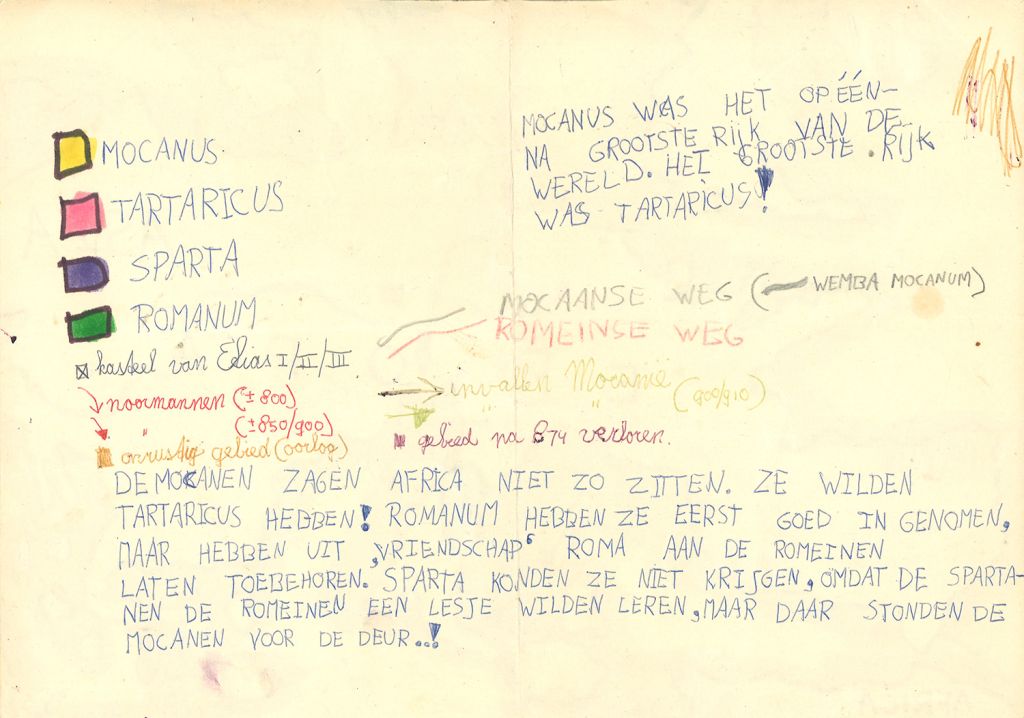 MOCANUS WAS HET OP ÉÉN-
NA GROOTSTE RIJK VAN DE
WERELD. HET GROOTSTE RIJK
WAS TARTARICUS!
MOCANUS
TARTARICUS
SPARTA
ROMANUM
kasteel van Elias I/II/III
noormannen (± 800)
" (± 850/900)
onrustig gebied (oorlog)
MOCAANSE WEG ( WEMBA MOCANUM)
ROMEINSE WEG
invallen Mocanië
" " (900/910)
gebied na 874 verloren.
DE MOCANEN ZAGEN AFRICA NIET ZO ZITTEN. ZE WILDEN
TARTARICUS HEBBEN! ROMANUM HEBBEN ZE EERST GOED IN GENOMEN,
MAAR HEBBEN UIT "VRIENDSCHAP" ROMA AAN DE ROMEINEN
LATEN TOEBEHOREN. SPARTA KONDEN ZE NIET KRIJGEN, OMDAT DE SPARTA-
NEN DE ROMEINEN EEN LESJE WILDEN LEREN, MAAR DAAR STONDEN DE
MOCANEN VOOR DE DEUR..!